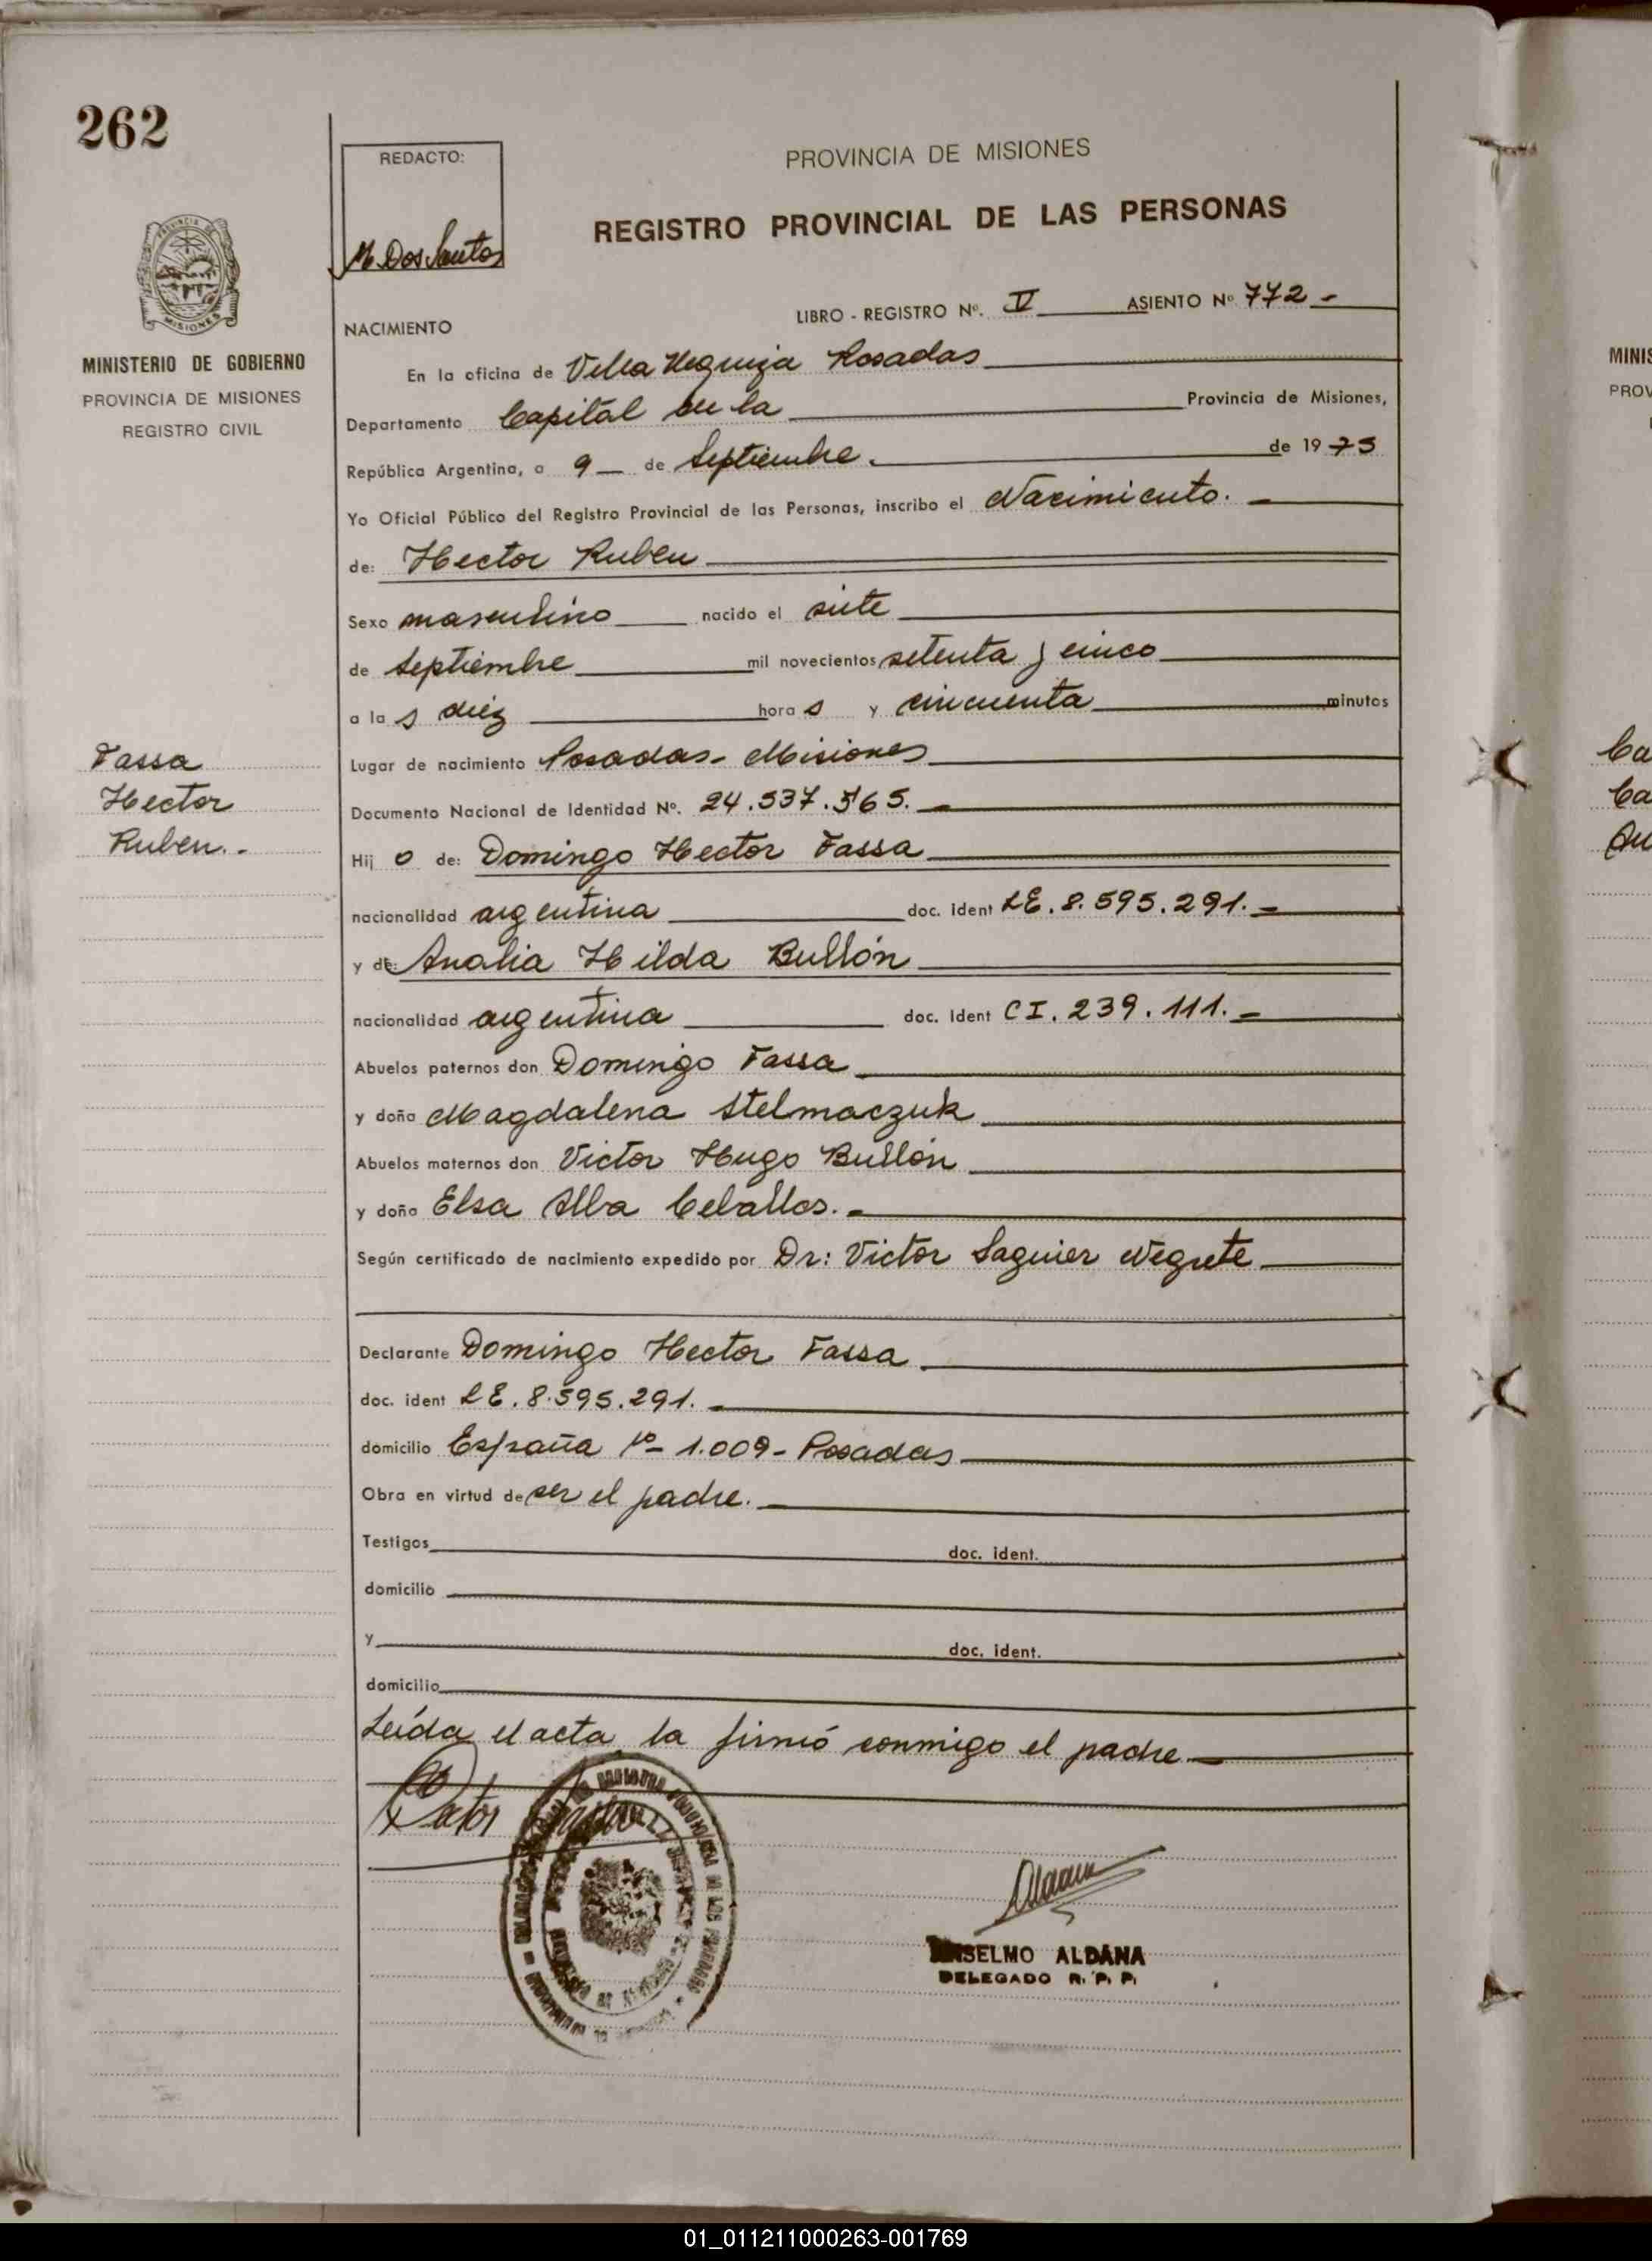 262
REDACTO:
M. Dos Santos
PROVINCIA DE MISIONES
REGISTRO PROVINCIAL DE LAS PERSONAS
PROVINCIA DE
MISIONES
MINISTERIO DE GOBIERNO
PROVINCIA DE MISIONES
REGISTRO CIVIL
LIBRO - REGISTRO Nº. V ASIENTO Nº 772 -
NACIMIENTO
En la oficina de Villa Urquiza Posadas
Departamento Capital de la Provincia de Misiones,
República Argentina, a 9 de Septiembre. de 1975
Yo Oficial Público del Registro Provincial de las Personas, inscribo el Nacimiento. -
de: Hector Ruben
Sexo masculino nacido el siete
de Septiembre mil novecientos setenta y cinco
a las diez horas y cincuenta minutos
Lugar de nacimiento Posadas - Misiones
Documento Nacional de Identidad Nº. 24.537.565. -
Hijo de: Domingo Hector Fassa
nacionalidad argentina doc. ident LE. 8.595.291. -
y de: Analia Hilda Bullón
nacionalidad argentina doc. Ident CI. 239.111. -
Abuelos paternos don Domingo Fassa
y doña Magdalena Stelmaczuk
Abuelos maternos don Victor Hugo Bullón
y doña Elsa Alba Ceballos. -
Según certificado de nacimiento expedido por Dr: Victor Saguier Negrete
Declarante Domingo Hector Fassa
doc. ident LE. 8.595.291. -
domicilio España Nº 1.009 - Posadas
Obra en virtud de ser el padre. -
Testigos doc. ident.
domicilio
y doc. ident.
domicilio
Leída el acta, la firmó conmigo el padre. -
Fassa
Hector
Ruben. -
ANSELMO ALDANA
DELEGADO R. P. P.
MINIS
PROV
Ca
Ca
01_011211000263-001769